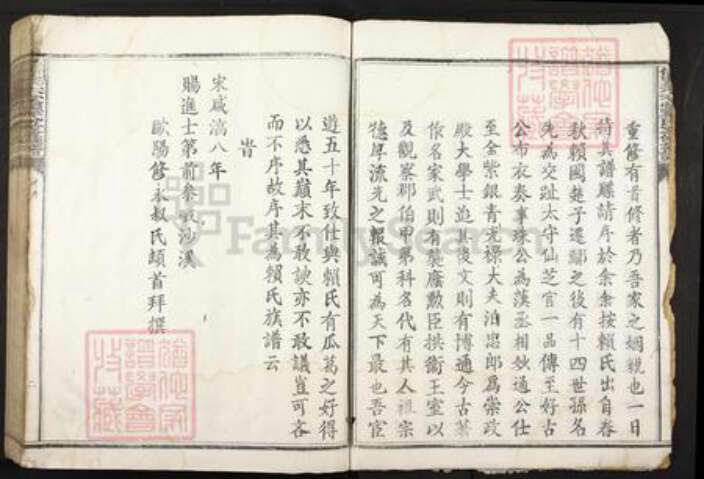 重修有首修者乃吾家之姻親也一日
持其譜牒請序於余余按賴氏出自春
秋賴國楚子遷鄢之後有十四世孫名
先為交趾太守仙芝官一品傳至好古
公布衣奏事珠公為漢丞相妙通公仕
至金紫銀青光祿大夫洎忠郎為崇政
殿大學士迨其後文則有博通今古業
依名家武則有襲廕勳臣拱衛王室以
及觀察郡伯甲第科名代有其人祖宗
德厚流光之報誠可為天下最也吾宦
遊五十年致仕與賴氏有瓜葛之好得
以悉其巔末不敢諛亦不敢議豈可吝
而不序故序其為賴氏族譜云
旹
宋咸淳八年
賜進士第前參政沙溪
歐陽修永叔氏頓首拜撰
FamilySearch